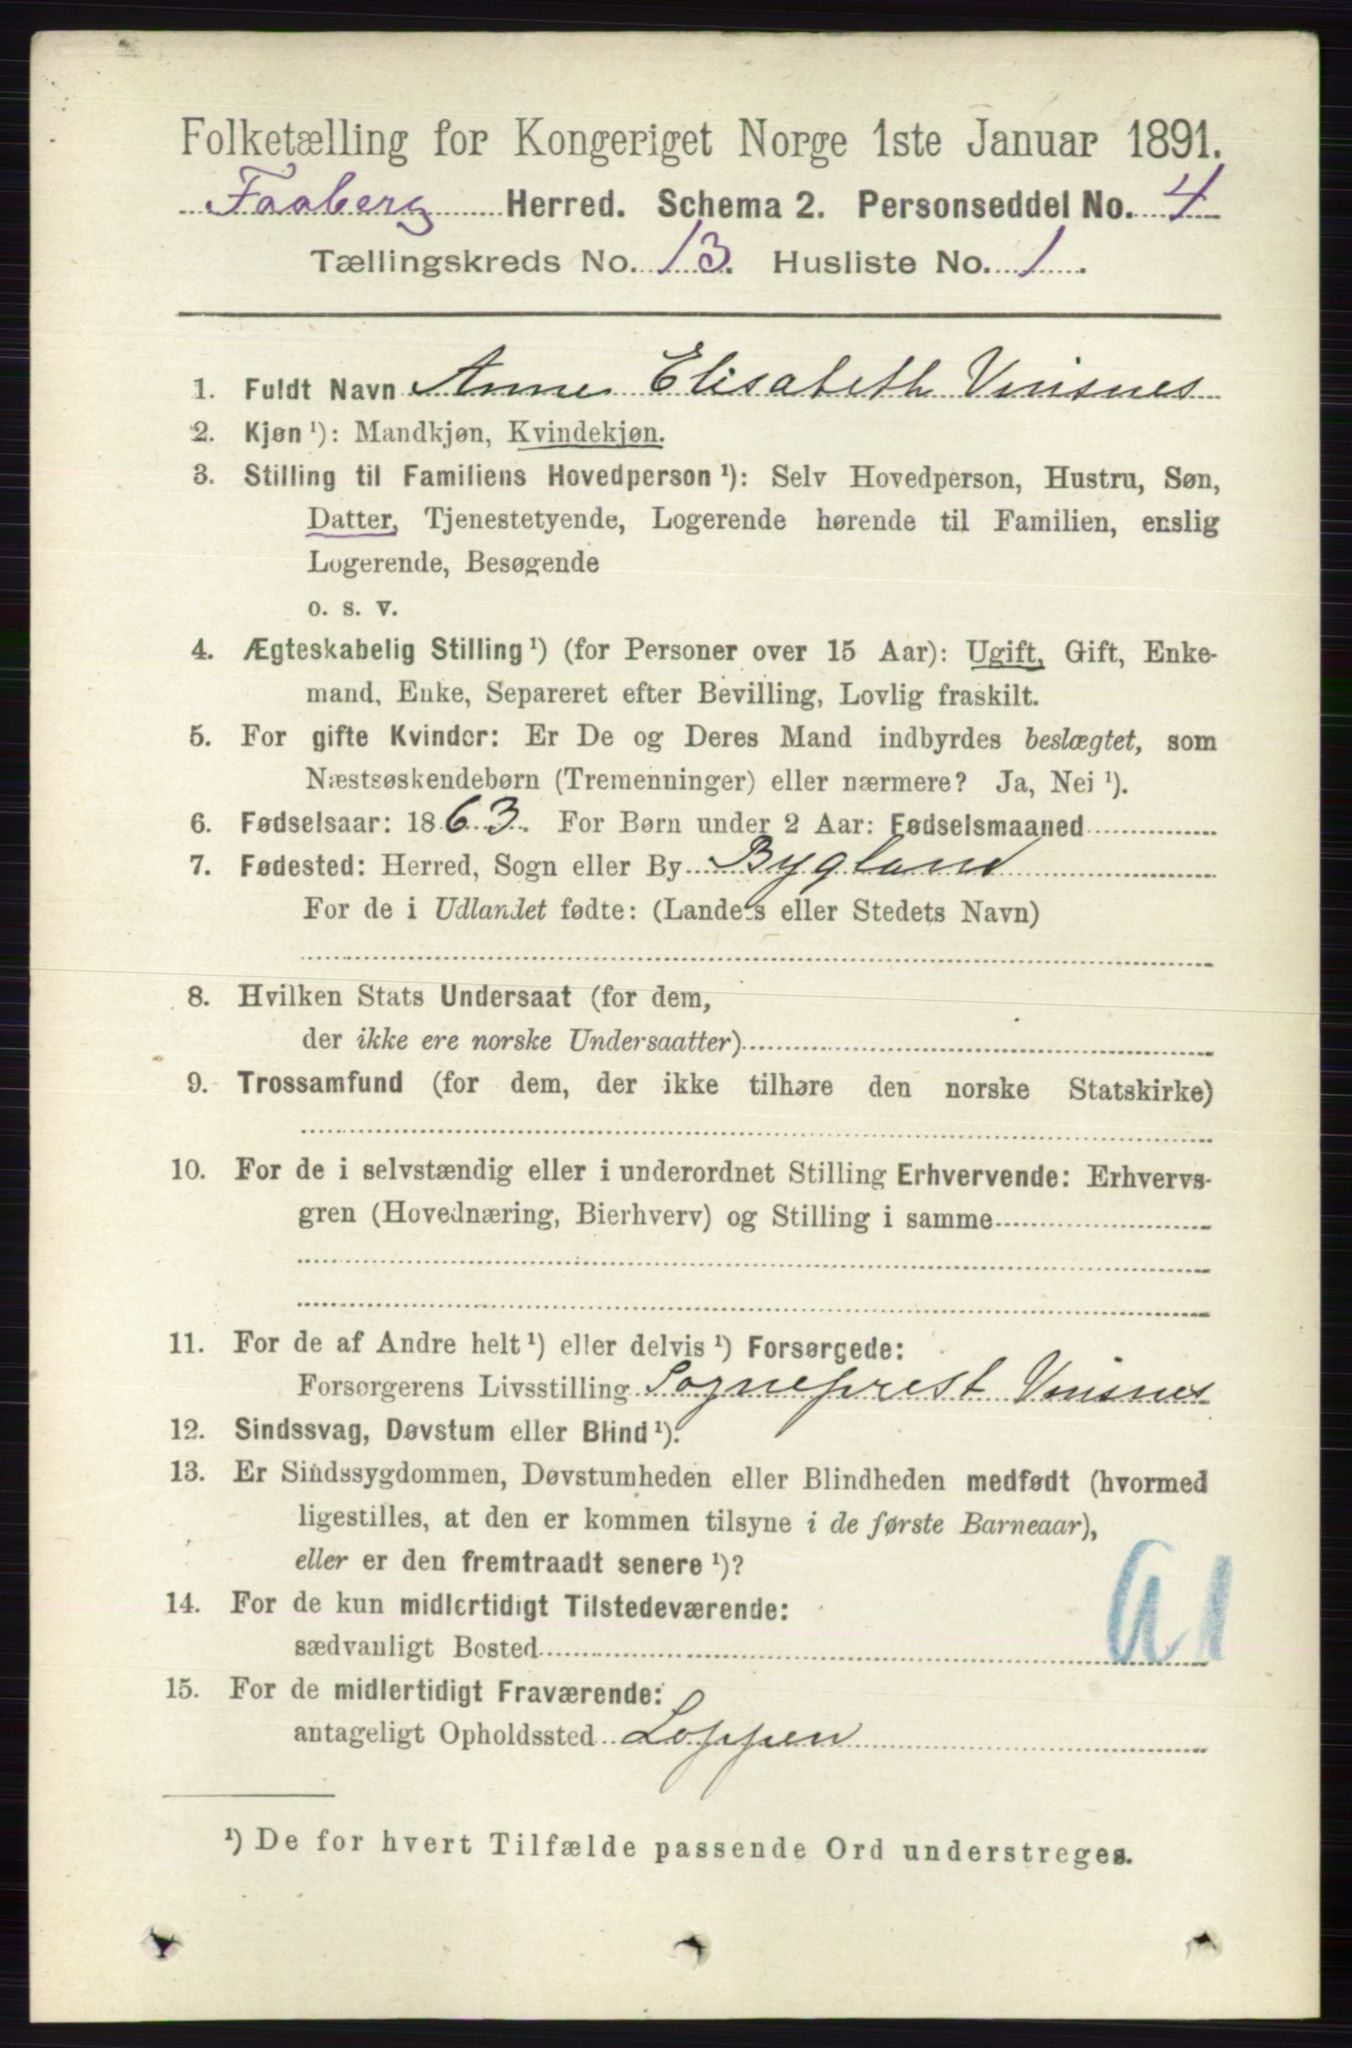 Folketælling for Kongeriget Norge 1ste Januar 1891.
Faaberg Herred. Schema 2. Personseddel No. 4
Tællingskreds No. 13. Husliste No. 1.
1. Fuldt Navn Anne Elisabeth Vinsnes
2. Kjøn ¹): Mandkjøn, Kvindekjøn.
3. Stilling til Familiens Hovedperson ¹): Selv Hovedperson, Hustru, Søn,
Datter, Tjenestetyende, Logerende hørende til Familien, enslig
Logerende, Besøgende
o. s. v.
4. Ægteskabelig Stilling ¹) (for Personer over 15 Aar): Ugift, Gift, Enke-
mand, Enke, Separeret efter Bevilling, Lovlig fraskilt.
5. For gifte Kvinder: Er De og Deres Mand indbyrdes beslægtet, som
Næstsøskendebørn (Tremenninger) eller nærmere? Ja, Nei ¹).
6. Fødselsaar: 1863. For Børn under 2 Aar: Fødselsmaaned
7. Fødested: Herred, Sogn eller By Bygland
For de i Udlandet fødte: (Landets eller Stedets Navn)
8. Hvilken Stats Undersaat (for dem,
der ikke ere norske Undersaatter)
9. Trossamfund (for dem, der ikke tilhøre den norske Statskirke)
10. For de i selvstændig eller i underordnet Stilling Erhvervende: Erhvervs-
gren (Hovednæring, Bierhverv) og Stilling i samme
11. For de af Andre helt ¹) eller delvis ¹) Forsørgede:
Forsørgerens Livsstilling Sogneprest Vinsnes
12. Sindssvag, Døvstum eller Blind ¹).
13. Er Sindssygdommen, Døvstumheden eller Blindheden medfødt (hvormed
ligestilles, at den er kommen tilsyne i de første Barneaar),
eller er den fremtraadt senere ¹)?
14. For de kun midlertidigt Tilstedeværende:
sædvanligt Bosted
15. For de midlertidigt Fraværende:
antageligt Opholdssted Loppen
¹) De for hvert Tilfælde passende Ord understreges.